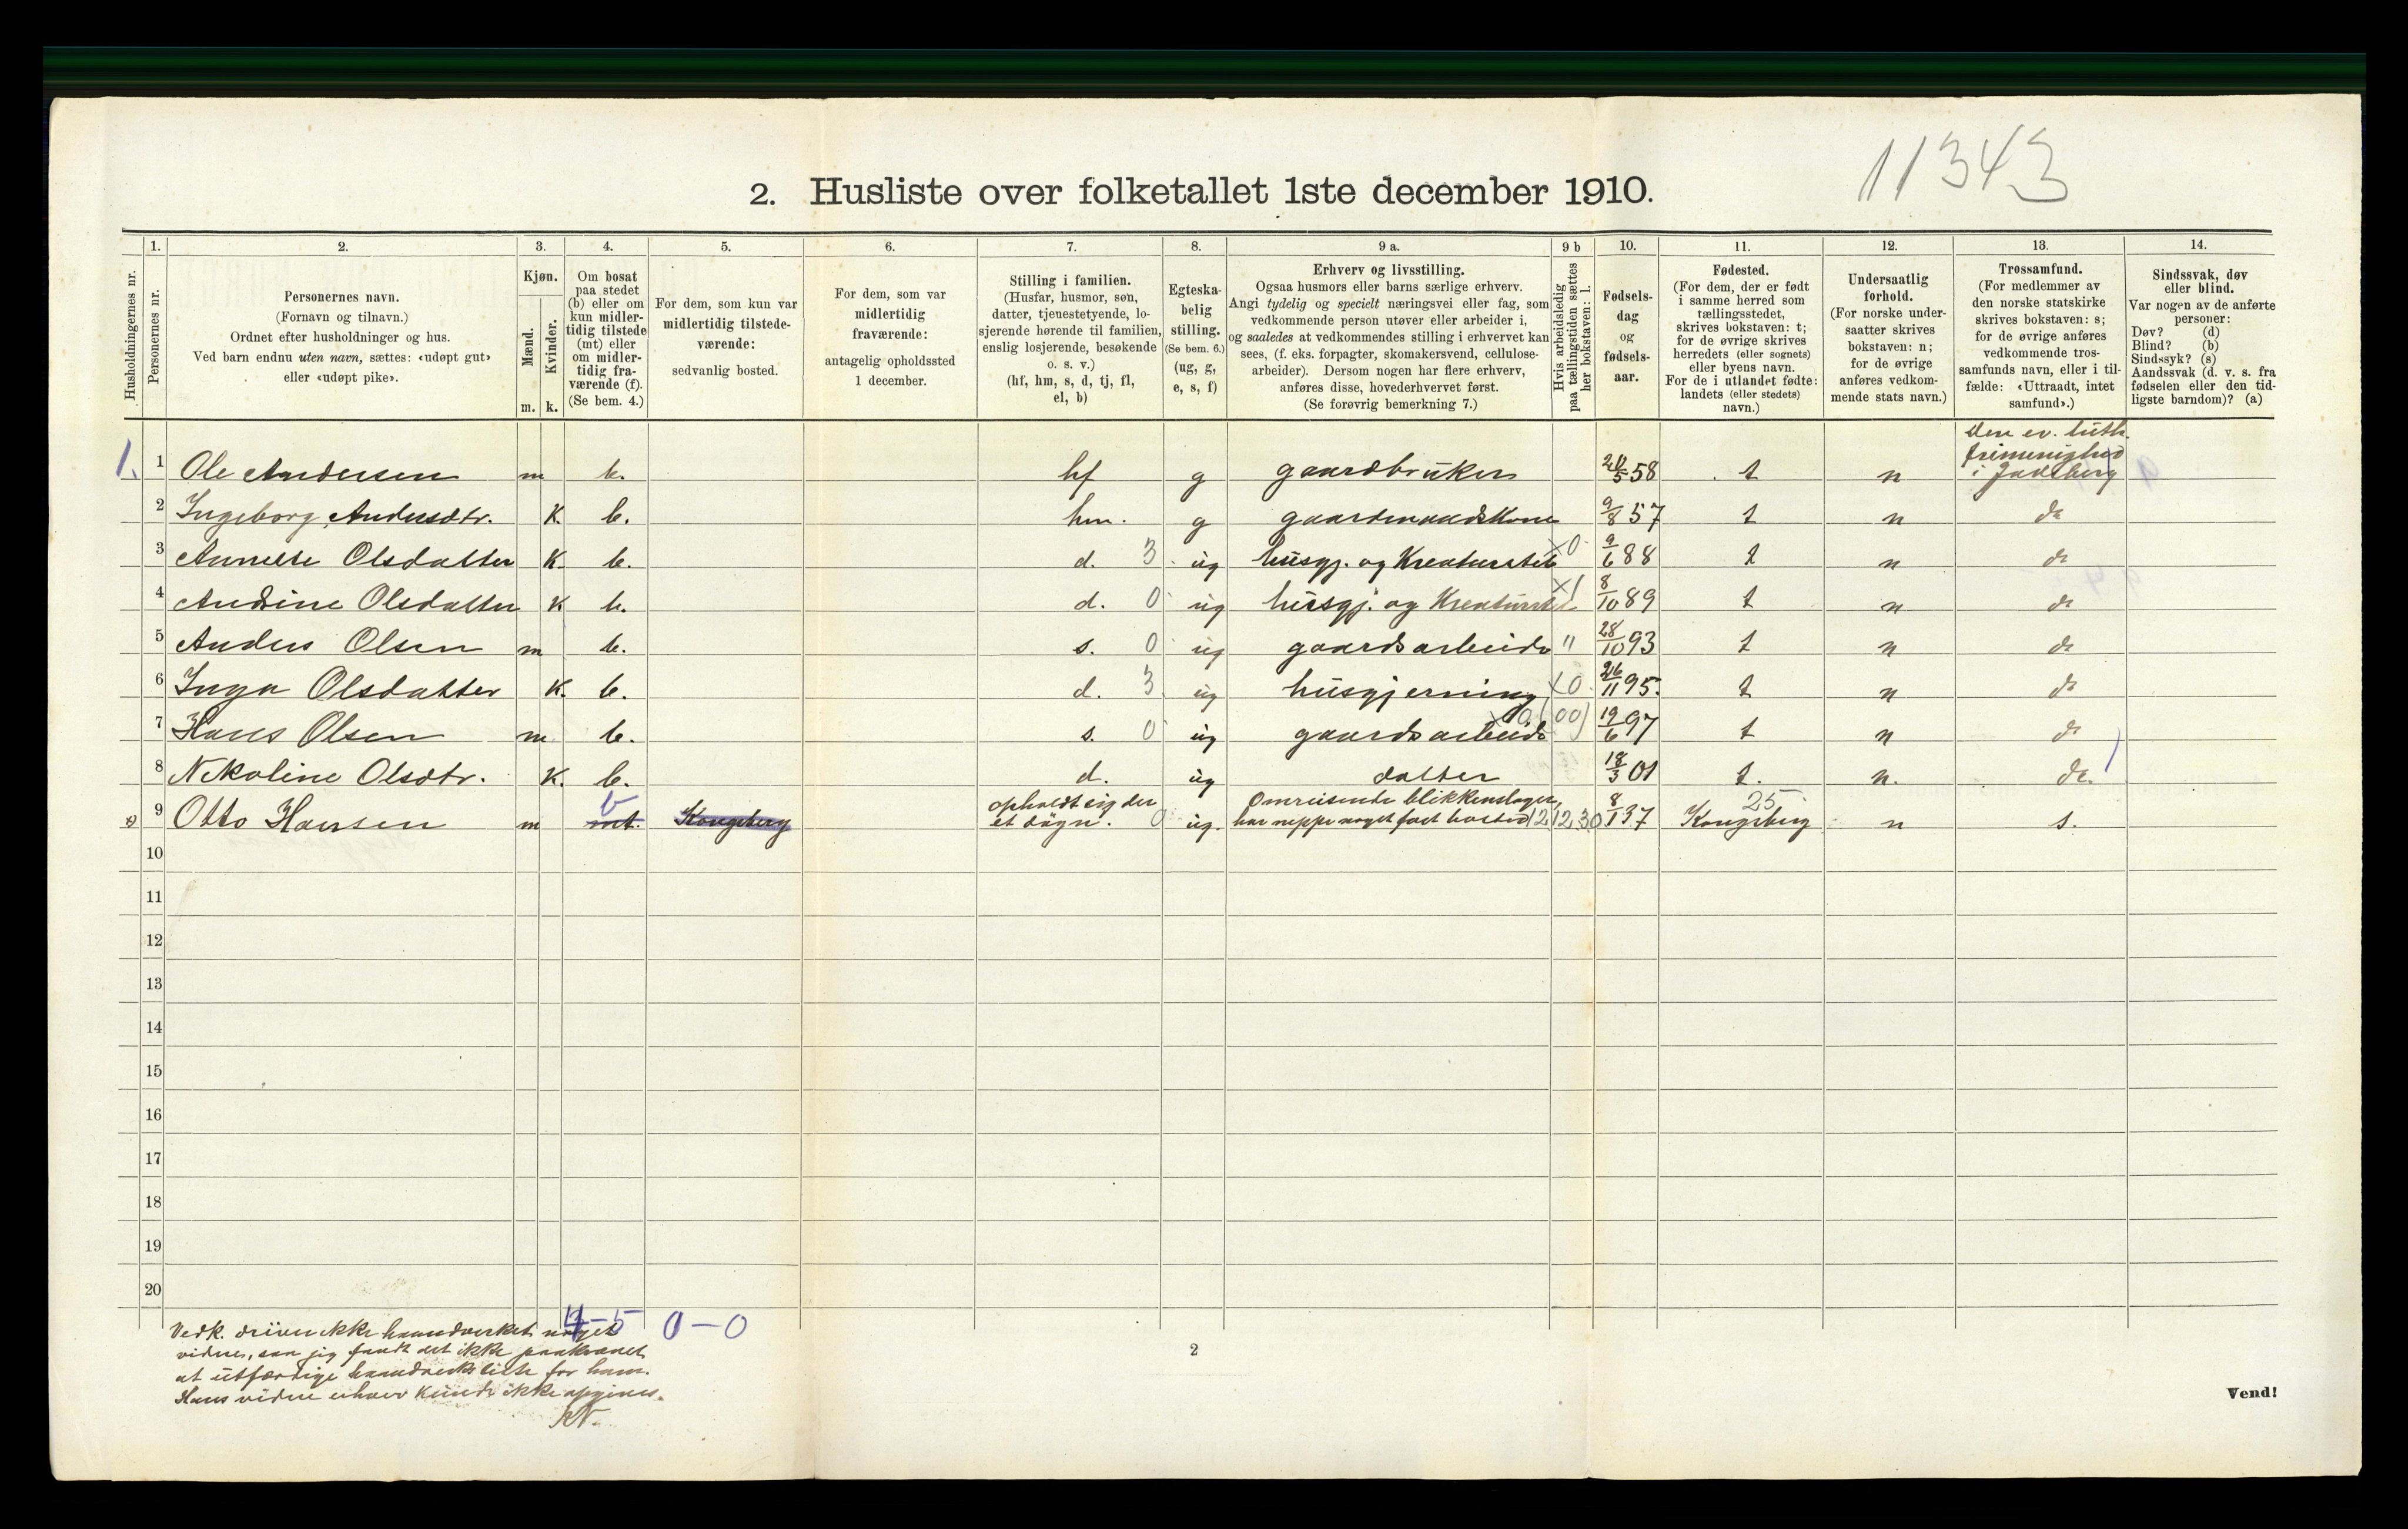 11343
2. Husliste over folketallet 1ste december 1910.
Husholdningernes nr.
1. Personernes nr.
2. Personernes navn.
(Fornavn og tilnavn.)
Ordnet efter husholdninger og hus.
Ved barn endnu uten navn, sættes: «udøpt gut»
eller «udøpt pike».
3. Kjøn.
Mænd. m.
Kvinder. k.
4. Om bosat
paa stedet
(b) eller om
kun midler-
tidig tilstede
(mt) eller
om midler-
tidig fra-
værende (f).
(Se bem. 4.)
5. For dem, som kun var
midlertidig tilstede-
værende:
sedvanlig bosted.
6. For dem, som var
midlertidig
fraværende:
antagelig opholdssted
1 december.
7. Stilling i familien.
(Husfar, husmor, søn,
datter, tjenestetyende, lo-
sjerende hørende til familien,
enslig losjerende, besøkende
o. s. v.)
(hf, hm, s, d, tj, fl,
el, b)
8. Egteska-
belig
stilling.
(Se bem. 6.)
(ug, g,
e, s, f)
9 a. Erhverv og livsstilling.
Ogsaa husmors eller barns særlige erhverv.
Angi tydelig og specielt næringsvei eller fag, som
vedkommende person utøver eller arbeider i,
og saaledes at vedkommendes stilling i erhvervet kan
sees, (f. eks. forpagter, skomakersvend, cellulose-
arbeider). Dersom nogen har flere erhverv,
anføres disse, hovederhvervet først.
(Se forøvrig bemerkning 7.)
9 b Hvis arbeidsledig
paa tællingstiden sættes
her bokstaven: l.
10. Fødsels-
dag
og
fødsels-
aar.
11. Fødested.
(For dem, der er født
i samme herred som
tællingsstedet,
skrives bokstaven: t;
for de øvrige skrives
herredets (eller sognets)
eller byens navn.
For de i utlandet fødte:
landets (eller stedets)
navn.)
12. Undersaatlig
forhold.
(For norske under-
saatter skrives
bokstaven: n;
for de øvrige
anføres vedkom-
mende stats navn.)
13. Trossamfund.
(For medlemmer av
den norske statskirke
skrives bokstaven: s;
for de øvrige anføres
vedkommende tros-
samfunds navn, eller i til-
fælde: «Uttraadt, intet
samfund».)
14. Sindssvak, døv
eller blind.
Var nogen av de anførte
personer:
Døv? (d)
Blind? (b)
Sindssyk? (s)
Aandssvak (d. v. s. fra
fødselen eller den tid-
ligste barndom)? (a)
1. 1 Ole Andersen m b. hf g gaardbruker 58 t n Den ev. luth. frimenighed i Jarlsberg
2 Ingeborg Andersdtr. K. b. hm. g gaardmandskone 9/8 57 t n do
3 Annette Olsdatter K. b. d. 3 ug husgj. og Kreaturstel x0 9/6 88 t n do
4 Andrine Olsdatter K b. d. 0 ug husgj. og Kreaturstel x1 8/10 89 t n do
5 Anders Olsen m b. s. 0 ug gaardsarbeide " 28/10 93 t n do
6 Inga Olsdatter K. b. d. 3 ug husgjerning x0 26/11 95. t n do
7 Hans Olsen m b. s. 0 ug gaardsarbeide x0 (00) 19/6 97 t n do
8 Nikoline Olsdtr. K. b. d. ug datter 18/3 01 t. n. do.
9 Otto Hansen m mt. b Kongsberg opholdt sig der et døgn. 0 ug. Omreisende blikkenslager, har neppe noget fast bosted 12 12.30 8/1 37 25 Kongsberg n s.
10
11
12
13
14
15
16
17
18
19
20
4-5 0-0
Vedk. driver ikke haandverket noget
videre, saa jeg fandt det ikke paakrævet
at utfærdige haandverksliste for ham.
Hans videre erhverv kunde ikke opgives.
KN.
2
Vend!